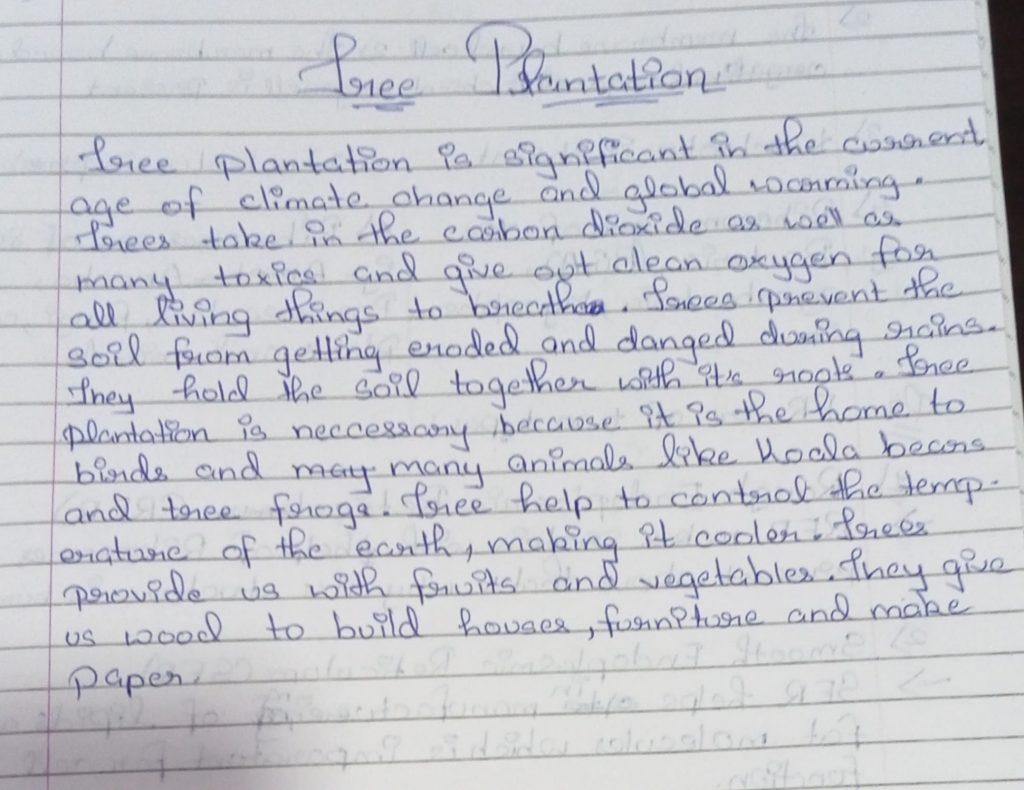 Tree Plantation
Tree plantation is significant in the current
age of climate change and global warming.
Trees take in the carbon dioxide as well as
many toxics and give out clean oxygen for
all living things to breathe. Trees prevent the
soil from getting eroded and danged during rains.
They hold the soil together with it's roots. Tree
plantation is neccessary because it is the home to
birds and may many animals like Koala bears
and tree frogs. Tree help to control the temp-
erature of the earth, making it cooler. Trees
provide us with fruits and vegetables. They give
us wood to build houses, furniture and make
paper.